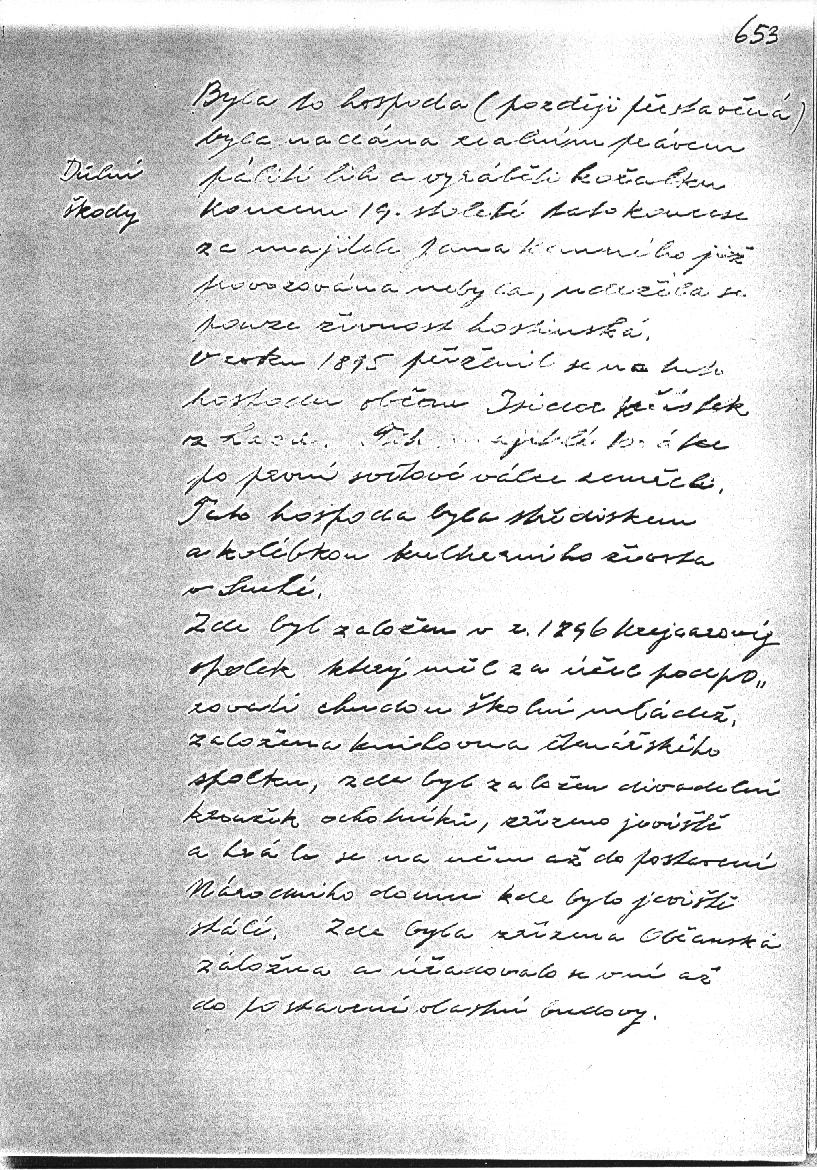 653
Důlní
škody
Byla to hospoda (později přestavěná)
byla nadána reálním právem
páliti líh a vyráběti kořalku
koncem 19. století tato koncese
za majitele Jana Kamného již
provozována nebyla, udržela se
pouze živnost hostinská.
V roku 1895 přiženil se na tuto
hospodu občan Isidor
z
po první světové válce zemřeli.
Tato hospoda byla střediskem
a kolébkou kulturního života
v Suché.
Zde byl založen v r. 1896
spolek který měl za účel podpo„
rovati chudou školní mládež,
založena knihovna čtenářského
spolku, zde byl založen divadelní
kroužek ochotníků, zřízeno jeviště
a hrálo se na něm až do postavení
Národního domu kde bylo jeviště
stálé. Zde byla zřízena Občanská
záložna a úřadovalo se v ní až
do postavení vlastní budovy.